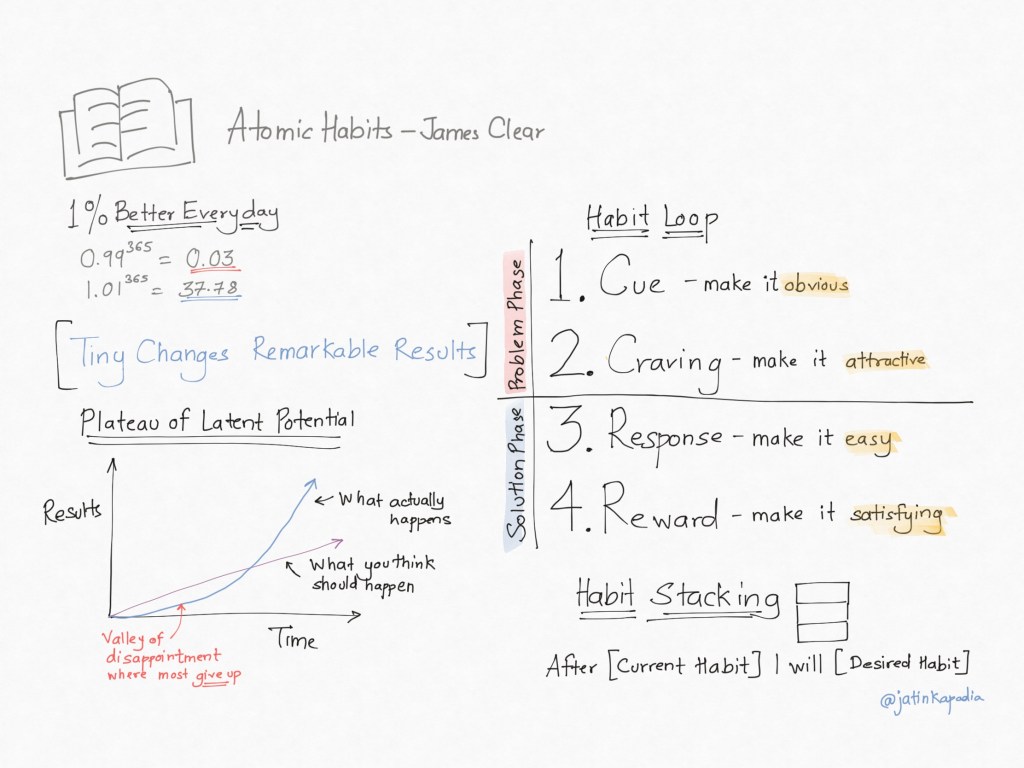 Atomic Habits – James Clear
1% Better Everyday
0.99^365 = 0.03
1.01^365 = 37.78
[Tiny Changes Remarkable Results]
Plateau of Latent Potential
Results
What actually
happens
What you think
should happen
Time
Valley of
disappointment
where most give up
Habit Loop
Problem Phase
1. Cue – make it obvious
2. Craving – make it attractive
Solution Phase
3. Response – make it easy
4. Reward – make it satisfying
Habit Stacking
After [Current Habit] I will [Desired Habit]
@jatinkapadia